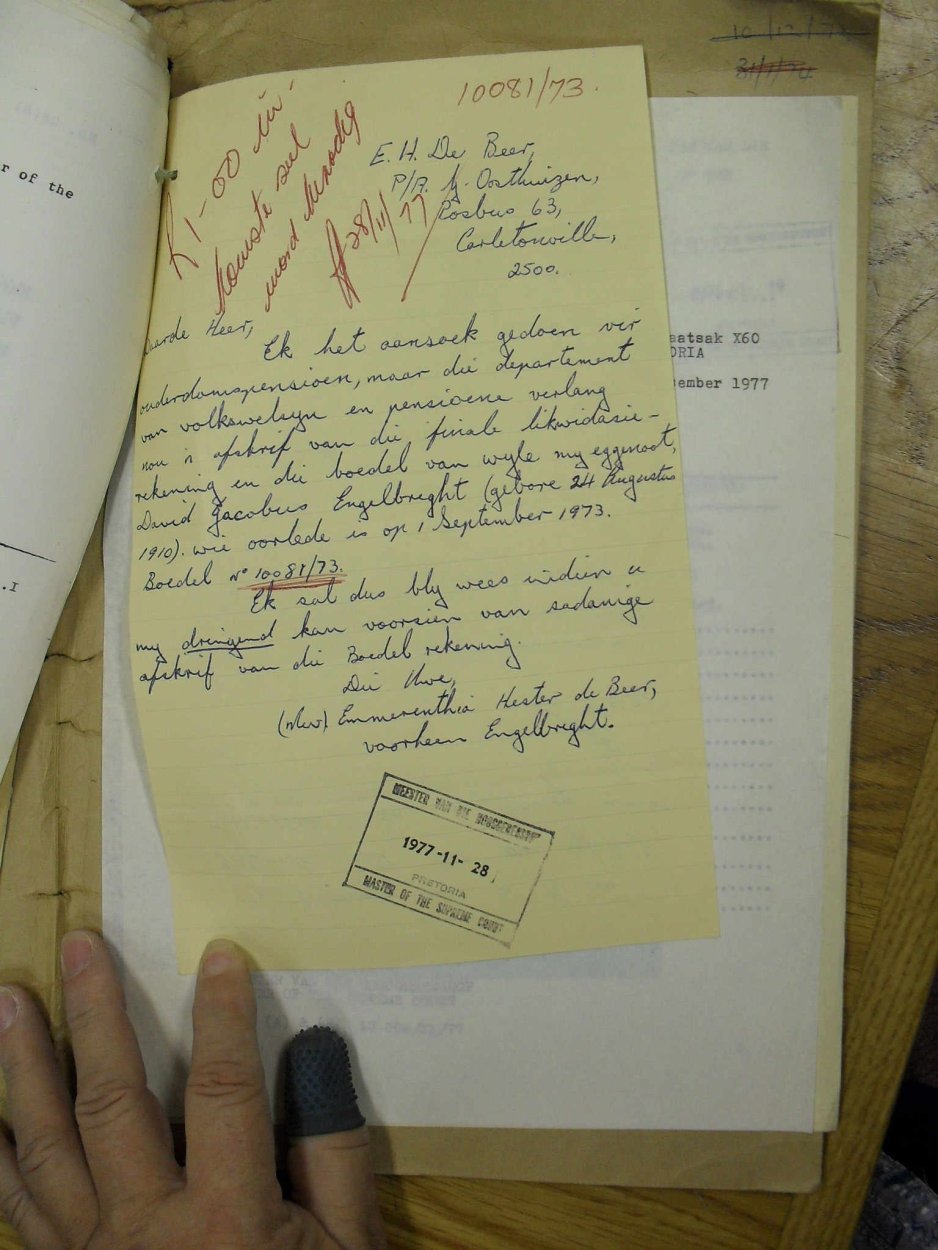 10/12/73
r of the
10081/73.
R1-00 in
koomste sul
word benodig
28/11/77
E. H. De Beer,
P/A. J. Oosthuizen,
Posbus 63,
Carletonville,
2500.
aarde Heer,
Ek het aansoek gedoen vir
ouderdomspensioen, maar die departement
van volkswelsyn en pensioene verlang
nou 'n afskrif van die finale likwidasie-
rekening en die boedel van wyle my eggenoot,
David Jacobus Engelbreght (gebore 24 Augustus
1910). wie oorlede is op 1 September 1973.
Boedel No 10081/73.
Ek sal dus bly wees indien u
my dringend kan voorsien van sodanige
afskrif van die Boedel rekening.
Die Uwe,
(Mev) Emmerenthia Hester de Beer,
voorheen Engelbreght.
MEESTER VAN DIE HOOGGEREGSHOF
1977-11-28
PRETORIA
MASTER OF THE SUPREME COURT
aatsak X60
ORIA
ember 1977
.I